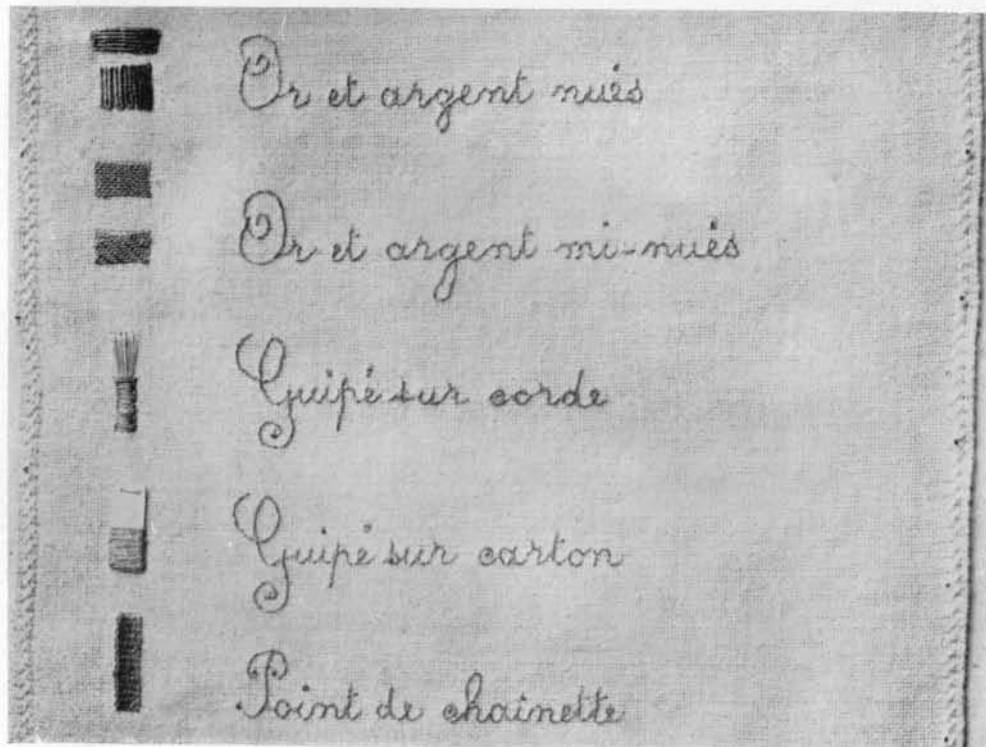 Or et argent nués
Or et argent mi-nués
Guipé sur corde
Guipé sur carton
Point de chainette